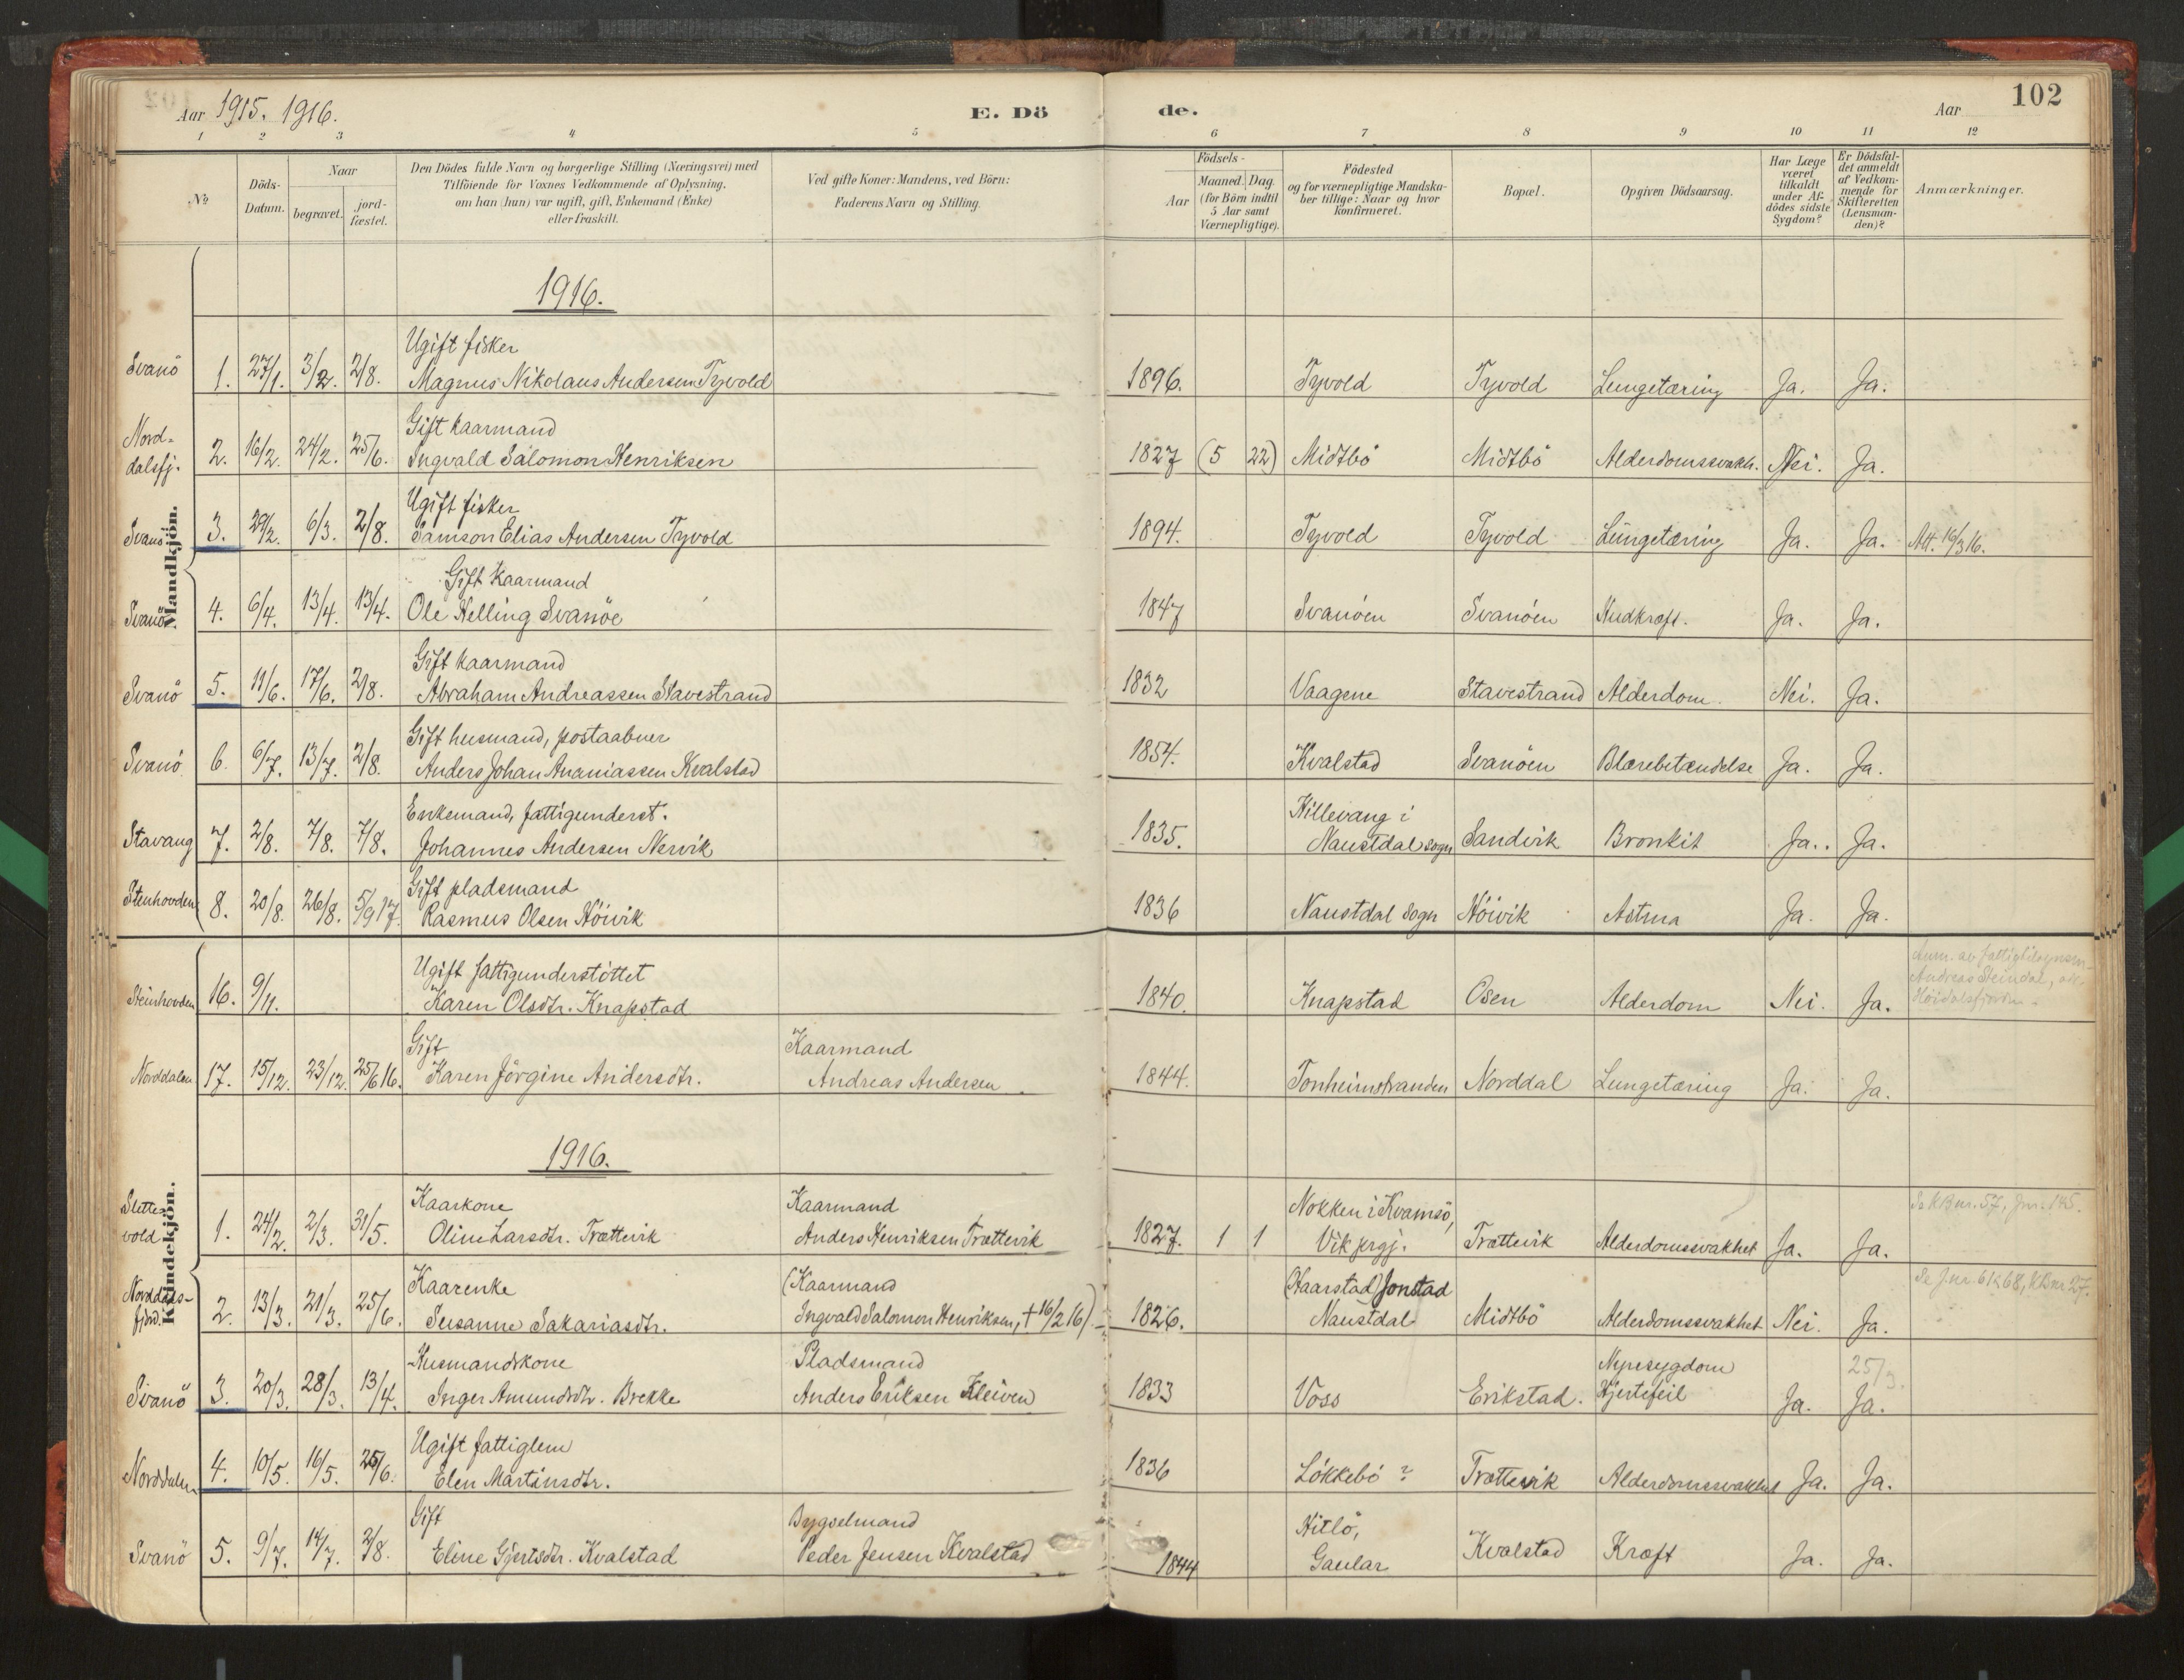 102
Aar 1915. 1916.
E. Dö
de.
Aar
1 2 3 4 5 6 7 8 9 10 11 12
No
Döds-Datum.
Naar
begravet.
jord-fæstet.
Den Dödes fulde Navn og borgerlige Stilling (Næringsvei) med
Tilföiende for Voxnes Vedkommende af Oplysning,
om han (hun) var ugift, gift, Enkemand (Enke)
eller fraskilt.
Ved gifte Koner: Mandens, ved Börn:
Faderens Navn og Stilling.
Födsels-
Aar
Maaned. Dag
(for Börn indtil
5 Aar samt
Værnepligtige).
Födested
og for værnepligtige Mandska-
ber tillige: Naar og hvor
konfirmeret.
Bopæl.
Opgiven Dödsaarsag.
Har Læge
været
tilkaldt
under Af-
dödes sidste
Sygdom?
Er Dödsfal-
det anmeldt
af Vedkom-
mende for
Skifteretten
(Lensman-
den)?
Anmærkninger.
Mandkjön.
1916.
Ugift fisker
Svanö 1. 27/1. 3/2. 2/8. Magnus Nikolaus Andersen Tyvold 1896. Tyvold Tyvold Lungetæring Ja. Ja.
Gift kaarmand
Nord-
dalsfj. 2. 16/2. 24/2. 25/6. Ingvald Salomon Henriksen 1827 (5 22) Midtbö Midtbö Alderdomssvakh. Nei. Ja.
Ugift fisker
Svanö 3. 29/2. 6/3. 2/8. Samson Elias Andersen Tyvold 1894. Tyvold Tyvold Lungetæring Ja. Ja. Att. 16/3 16.
Gift Kaarmand
Svanö 4. 6/4. 13/4. 13/4. Ole Helling Svanöe 1847 Svanöen Svanöen Hudkræft. Ja. Ja.
Gift kaarmand
Svanö 5. 11/6. 17/6. 2/8. Abraham Andreassen Stavestrand 1832 Vaagene Stavestrand Alderdom. Nei. Ja.
Gift husmand, postaabner
Svanö 6. 6/7. 13/7. 2/8. Anders Johan Ananiassen Kvalstad 1854. Kvalstad Svanöen Blærebetændelse Ja. Ja.
Enkemand, fattigunderst. Hillevang i
Stavang 7. 2/8. 7/8. 7/8. Johannes Andersen Nervik 1835. Naustdal sogn Sandvik Bronkit Ja. Ja.
Gift pladsmand
Stenhovden 8. 20/8. 26/8. 5/9 17. Rasmus Olsen Höivik 1836 Naustdal Sogn Höivik Astma Ja. Ja.
Ugift fattigunderstöttet
Steinhovden 16. 9/11. Karen Olsdtr. Knapstad 1840. Knapstad Osen Alderdom Nei. Ja.
Gift Kaarmand
Norddalen 17. 15/12. 23/12. 25/6 16. Karen Jörgine Andersdtr. Andreas Andersen 1844. Tonheimstranden Norddal Lungetæring Ja. Ja.
Kvindekjön.
1916.
Kaarkone Kaarmand Nokken i Kvamsö, Se KBnr. 57, Jnr. 145.
Slette-
vold 1. 24/2. 2/3. 31/5. Oline Larsdtr. Trættevik Anders Henriksen Trættevik 1827. 1 1 Vik prgj. Trættevik Alderdomssvakhet Ja. Ja.
Kaarenke (Kaarmand (Haarstad) Jonstad
Norddals-
fjord. 2. 13/3. 21/3. 25/6. Susanne Sakariasdtr. Ingvald Salomon Henriksen, + 16/2 16) 1826. Naustdal Midtbö Alderdomssvakhet Nei. Ja.
Husmandskone Pladsmand Nyresygdom 25/3.
Svanö 3. 20/3. 28/3. 13/4. Inger Amundsdtr. Brekke Anders Eriksen Kleiven 1833 Voss Erikstad. Hjertefeil Ja. Ja.
Ugift fattiglem
Norddalen 4. 10/5. 16/5. 25/6. Elen Martinsdtr. 1836 Lökkebö ? Trættevik Alderdomssvakhet Ja. Ja.
Gift Bygselmand Hitlö,
Svanö 5. 9/7. 14/7. 2/8. Eline Gjertsdtr. Kvalstad Peder Jensen Kvalstad 1844 Gaular Kvalstad Kræft Ja. Ja.